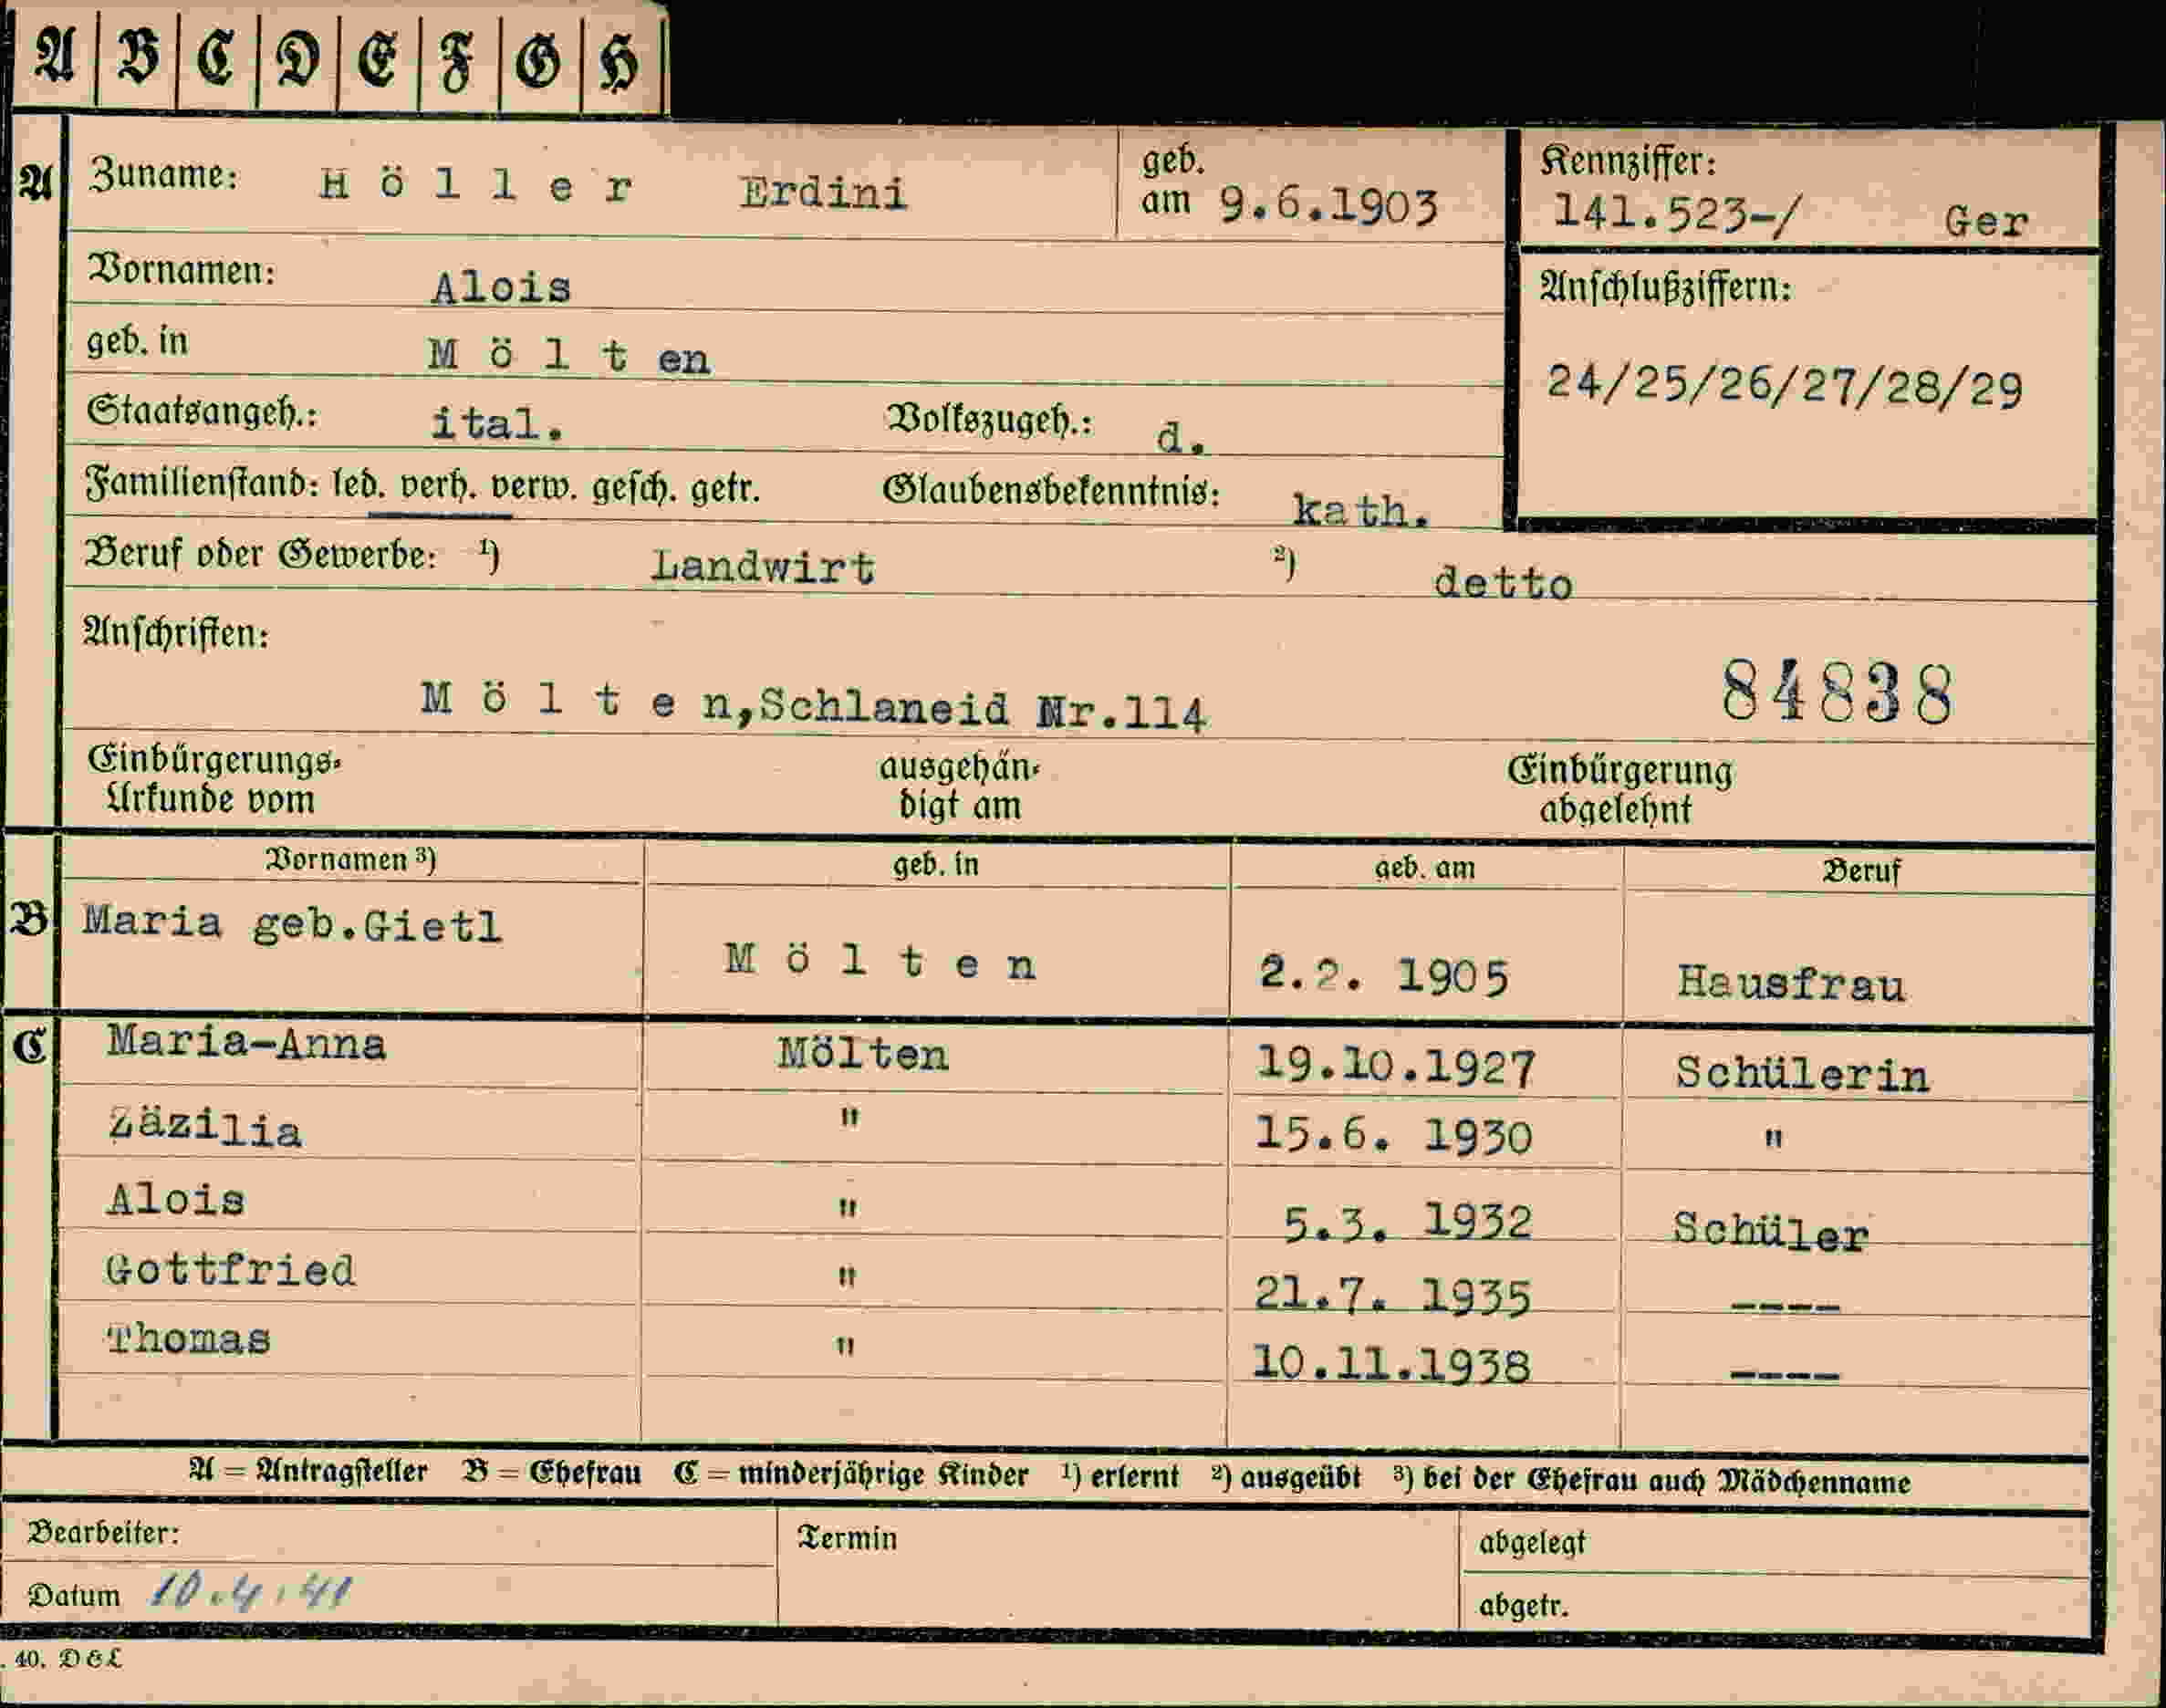 A B C D E F G H
A Zuname: Höller Erdini geb. am 9.6.1903 Kennziffer: 141.523-/ Ger
Vornamen: Alois Anschlußziffern:
geb. in Mölten 24/25/26/27/28/29
Staatsangeh.: ital. Volkszugeh.: d.
Familienstand: led. verh. verw. gesch. getr. Glaubensbekenntnis: kath.
Beruf oder Gewerbe: ¹) Landwirt ²) detto
Anschriften:
Mölten,Schlaneid Nr.114 84838
Einbürgerungs- ausgehän- Einbürgerung
Urkunde vom digt am abgelehnt
Vornamen ³) geb. in geb. am Beruf
B Maria geb.Gietl Mölten 2.2. 1905 Hausfrau
C Maria-Anna Mölten 19.10.1927 Schülerin
Zäzilia " 15.6. 1930 "
Alois " 5.3. 1932 Schüler
Gottfried " 21.7. 1935 ----
Thomas " 10.11.1938 ----
A = Antragsteller B = Ehefrau C = minderjährige Kinder ¹) erlernt ²) ausgeübt ³) bei der Ehefrau auch Mädchenname
Bearbeiter: Termin abgelegt
Datum 10.4.41 abgetr.
. 40. D&L